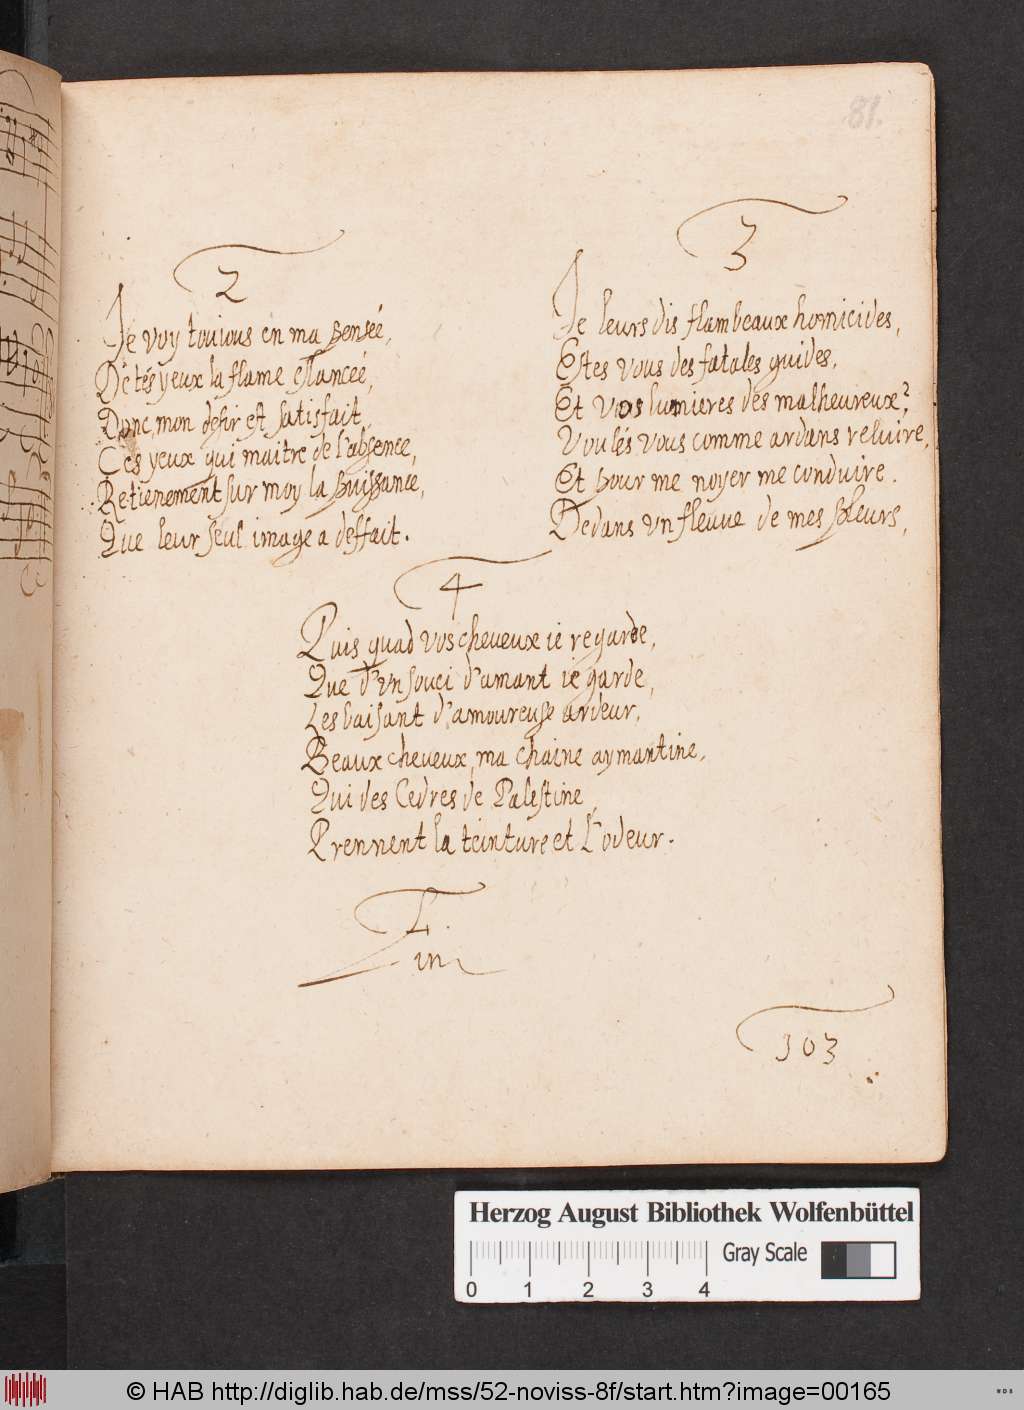 81.
2
Je voy toujous en ma pensée,
De tés yeux la flame eslanceé,
Donc, mon desir est satisfait,
Ces yeux qui maitre de l'absence,
Retienement sur moy la puissance,
Que leur seul image a deffait.
3
Je leurs dis flambeaux homicides,
Estes vous des fatales guides,
Et vos lumieres des malheureux?
Voulés vous comme ardans reluire,
Et pour me noyer me conduire.
Dedans vn fleuue de mes pleurs,
4
Puis quad vos cheueux ie regarde,
Que d'vn souci d'amant ie garde,
Les baisant d'amoureuse ardeur,
Beaux cheueux, ma chaine aymantine,
Qui des Cedres de Palestine,
Prennent la teinture et l'odeur.
Fin
103
Herzog August Bibliothek Wolfenbüttel
Gray Scale
0 1 2 3 4
© HAB http://diglib.hab.de/mss/52-noviss-8f/start.htm?image=00165